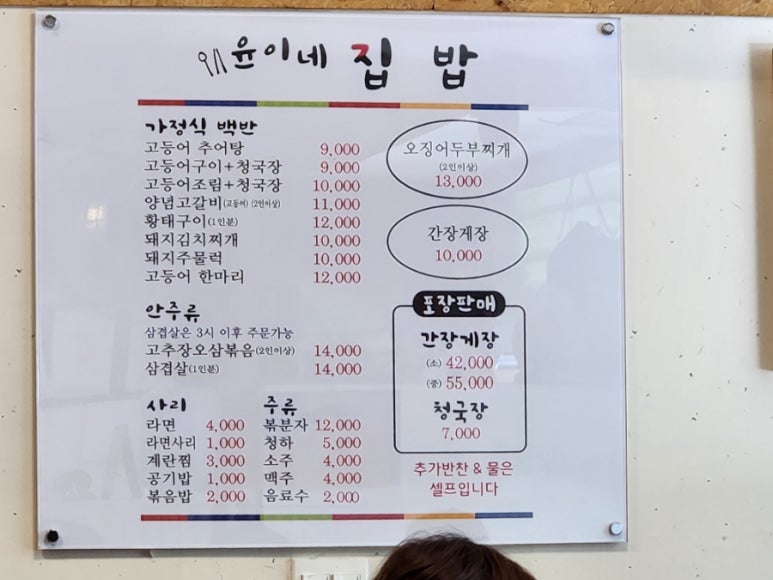 윤이네 집밥
가정식 백반
고등어 추어탕 9,000
고등어구이+청국장 9,000
고등어조림+청국장 10,000
양념고갈비(고등어) (2인이상) 11,000
황태구이(1인분) 12,000
돼지김치찌개 10,000
돼지주물럭 10,000
고등어 한마리 12,000
오징어두부찌개
(2인이상)
13,000
간장게장
10,000
안주류
삼겹살은 3시 이후 주문가능
고추장오삼볶음(2인이상) 14,000
삼겹살(1인분) 14,000
사리
라면 4,000
라면사리 1,000
계란찜 3,000
공기밥 1,000
볶음밥 2,000
주류
볶분자 12,000
청하 5,000
소주 4,000
맥주 4,000
음료수 2,000
포장판매
간장게장
(소) 42,000
(중) 55,000
청국장
7,000
추가반찬 & 물은
셀프입니다